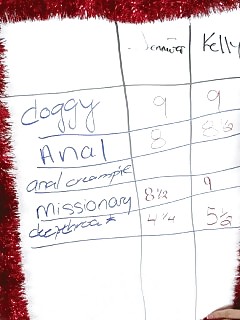 Jennifer Kelly
doggy 9 9
Anal 8 8½
anal creampie
missionary 8½ 9
deepthroat 4¼ 5½